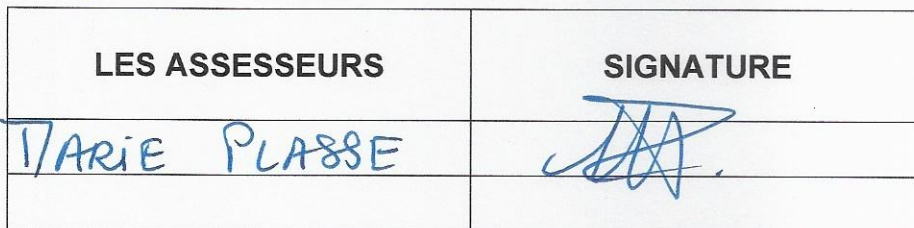 LES ASSESSEURS SIGNATURE
MARIE PLASSE